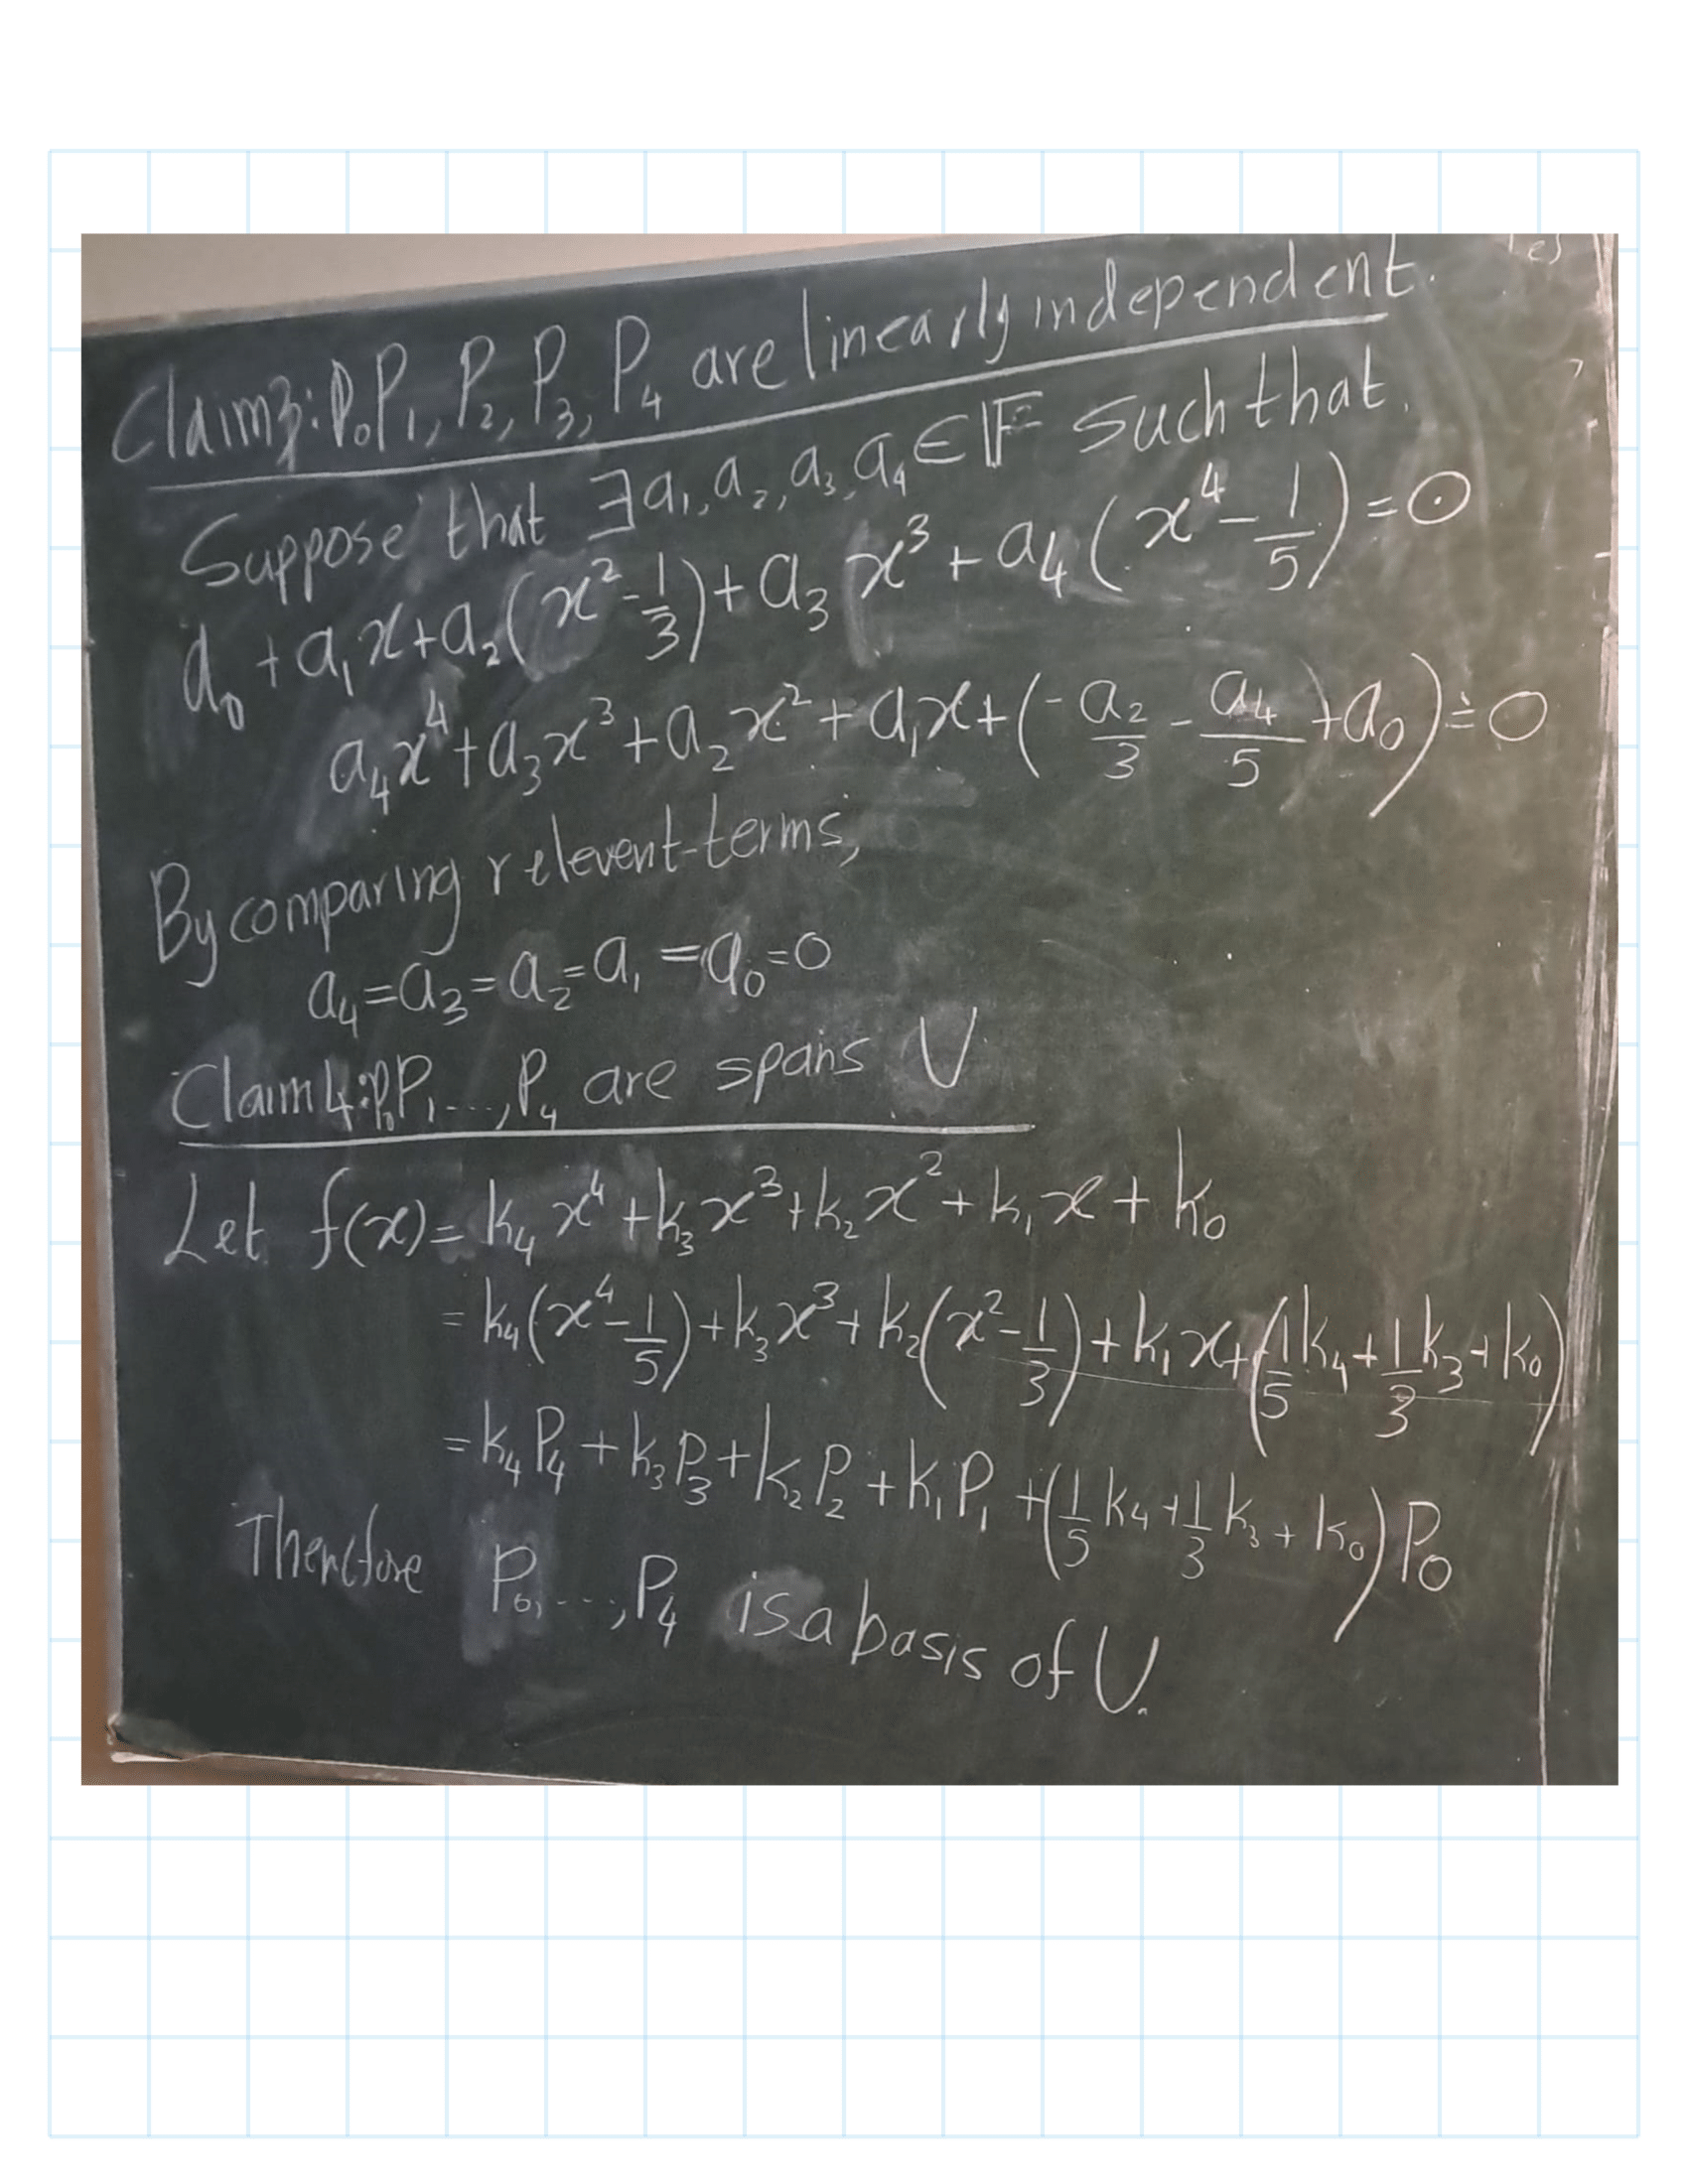 Claim 3: P₀ P₁, P₂, P₃, P₄ are linearly independent.
Suppose that ∃ a₁, a₂, a₃, a₄ ∈ 𝔽 such that
a₀ + a₁x + a₂(x² - 1/3) + a₃x³ + a₄(x⁴ - 1/5) = 0
a₄x⁴ + a₃x³ + a₂x² + a₁x + (-a₂/3 - a₄/5 + a₀) = 0
By comparing relevent terms,
a₄ = a₃ = a₂ = a₁ = a₀ = 0
Claim 4: P₀ P₁ ..., P₄ are spans U
Let f(x) = k₄x⁴ + k₃x³ + k₂x² + k₁x + k₀
= k₄(x⁴ - 1/5) + k₃x³ + k₂(x² - 1/3) + k₁x + (1/5 k₄ + 1/3 k₃ + k₀)
= k₄P₄ + k₃P₃ + k₂P₂ + k₁P₁ + (1/5 k₄ + 1/3 k₃ + k₀)P₀
Therefore P₀, ..., P₄ is a basis of U.